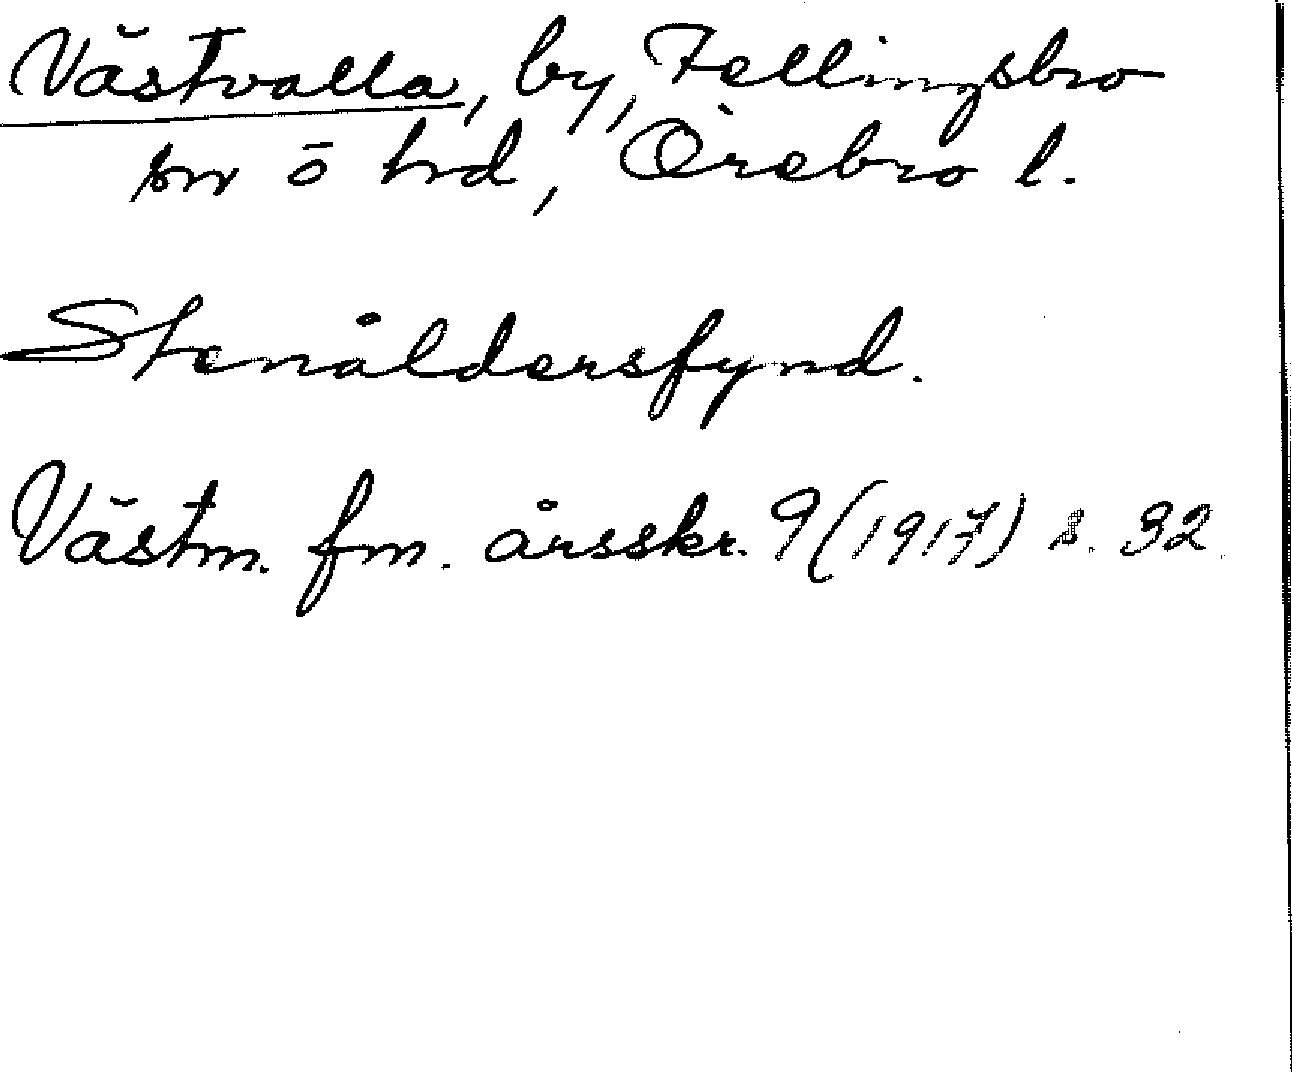 Västvalla, by, Fellingsbro
sn o hd, Örebro l.
Stenåldersfynd.
Västm. fm. årsskr. 9 (1917) s. 32.